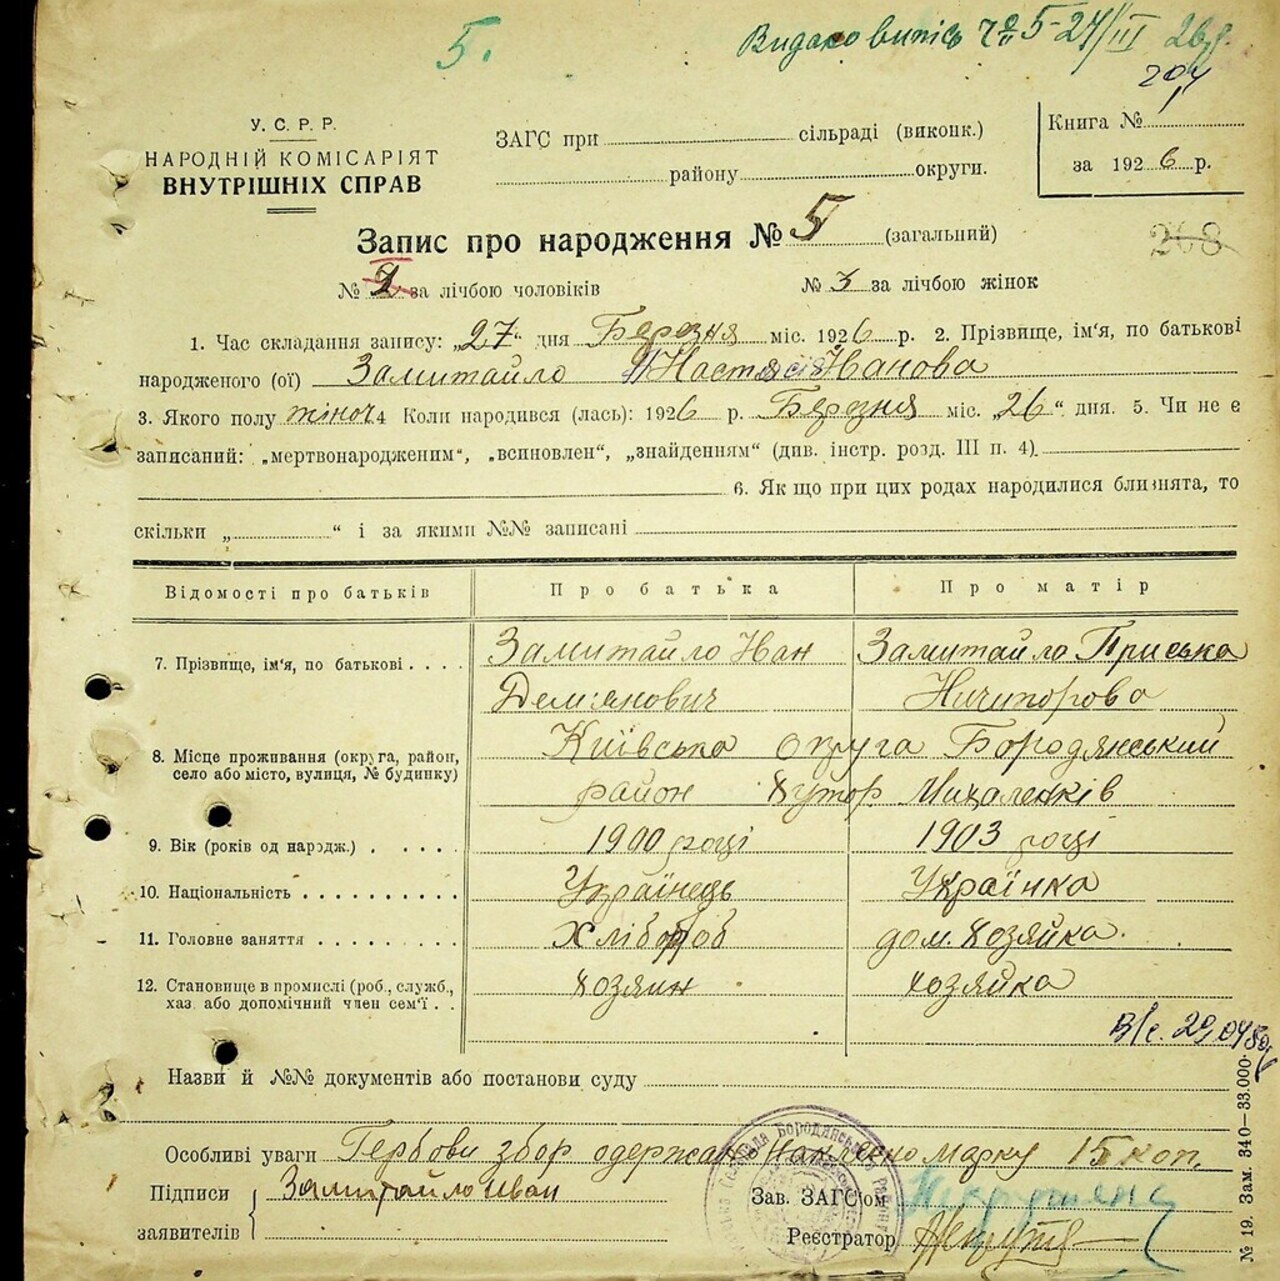 5.
Видано випісь 5 - 24/III 26 р.
204
У. С. Р. Р.
НАРОДНІЙ КОМІСАРІЯТ
ВНУТРІШНІХ СПРАВ
ЗАГС при сільраді (виконк.)
району округи.
Книга №
за 1926 р.
Запис про народження № 5 (загальний)
268
№ за лічбою чоловіків № 3 за лічбою жінок
1. Час складання запису: „27“ дня Березня міс. 1926 р. 2. Прізвище, ім'я, по батькові
народженого (ої) Замитайло Настасія Іванова
3. Якого полу жіноч 4 Коли народився (лась): 1926 р. Березня міс. „26“ дня. 5. Чи не є
записаний: „мертвонародженим“, „всиновлен“, „знайденням“ (див. інстр. розд. III п. 4)
6. Як що при цих родах народилися близнята, то
скільки „ “ і за якими №№ записані
Відомості про батьків Про батька Про матір
7. Прізвище, ім'я, по батькові . . . . Замитайло Іван Замитайло Приська
Дем'янович Ничипорова
8. Місце проживання (округа, район, Київська округа Бородянський
село або місто, вулиця, № будинку) район Хутор Михаленків
9. Вік (років од народж.) . . . . . 1900 році 1903 році
10. Національність . . . . . . . . . . Українець Українка
11. Головне заняття . . . . . . . . . Хлібороб дом. хозяйка.
12. Становище в промислі (роб., служб., хозяин хозяйка
хаз. або допомічний член сем'ї . .
Назви й №№ документів або постанови суду
Особливі уваги Гербови збор одержано Наклеєно марку 15 коп.
Підписи Замитайло Иван Зав. ЗАГС'ом
заявителів Реєстратор
№ 19. Зам. 340—33.000.